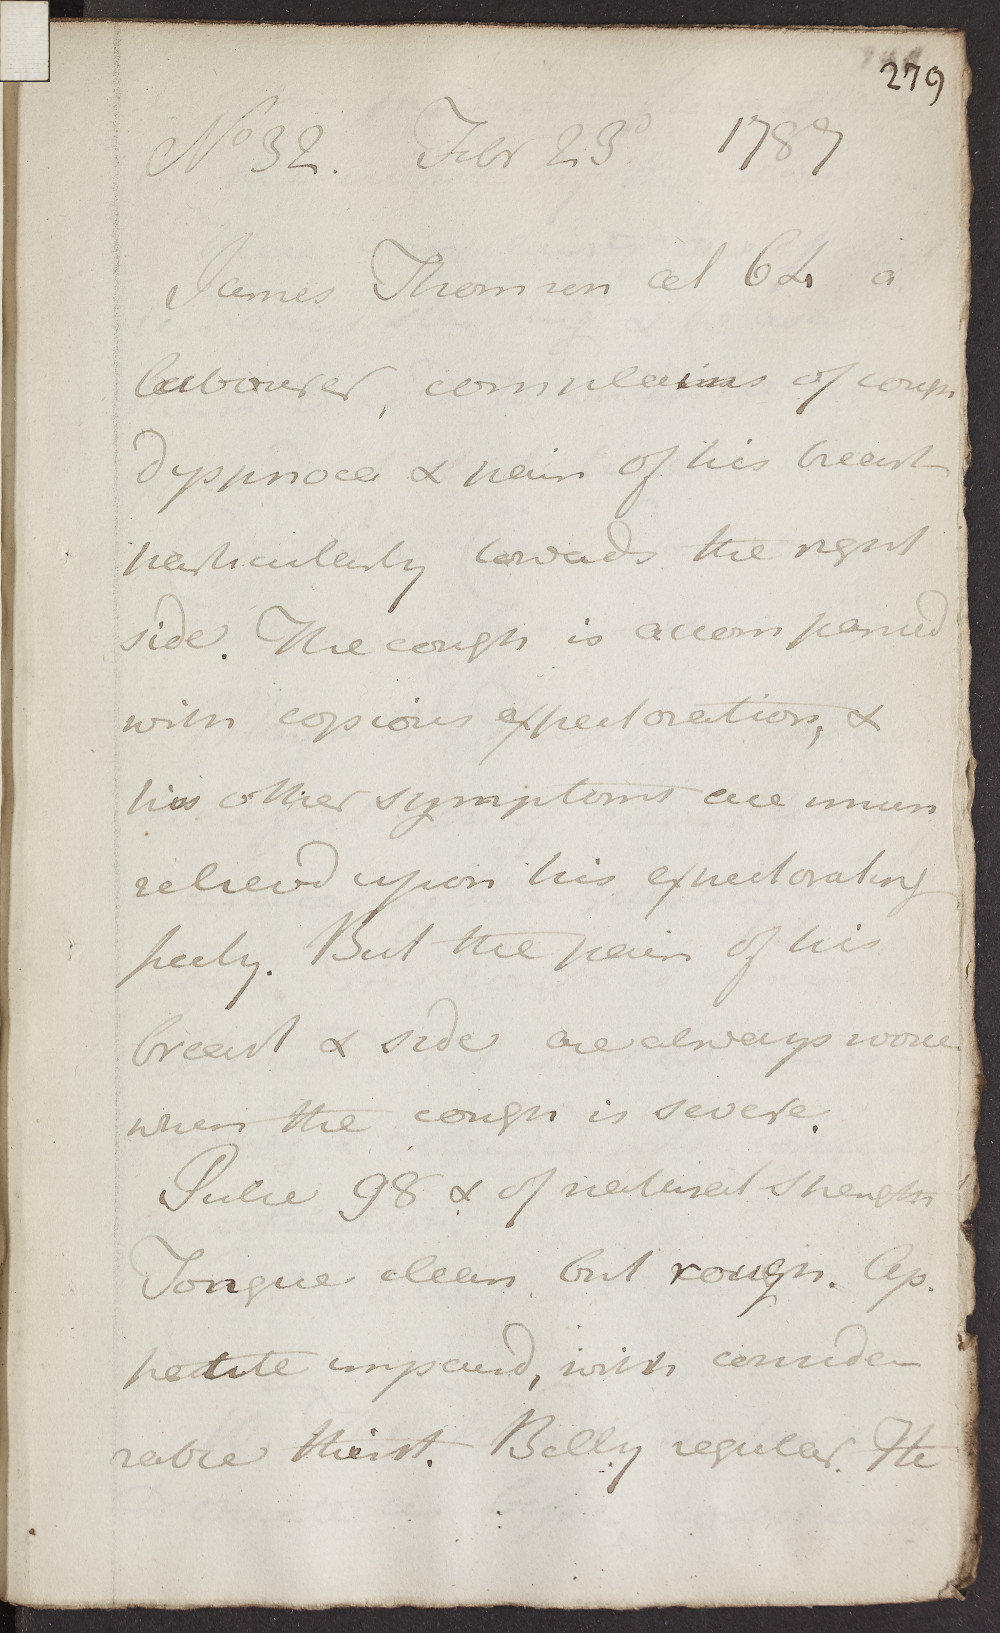 279
No 32. Febr 23o 1787
James Thomson aet 64 a
labourer, complains of cough
dyspnoea & pain of his breast
particularly towards the right
side. The cough is accompanied
with copious expectoration, &
his other symptoms are much
relieved upon his expectorating
freely. But the pain of his
breast & side are always worse
when the cough is severe.
Pulse 98 & of natural strength
Tongue clean but rough. Ap-
petite impaired, with conside-
rable thirst. Belly regular. The